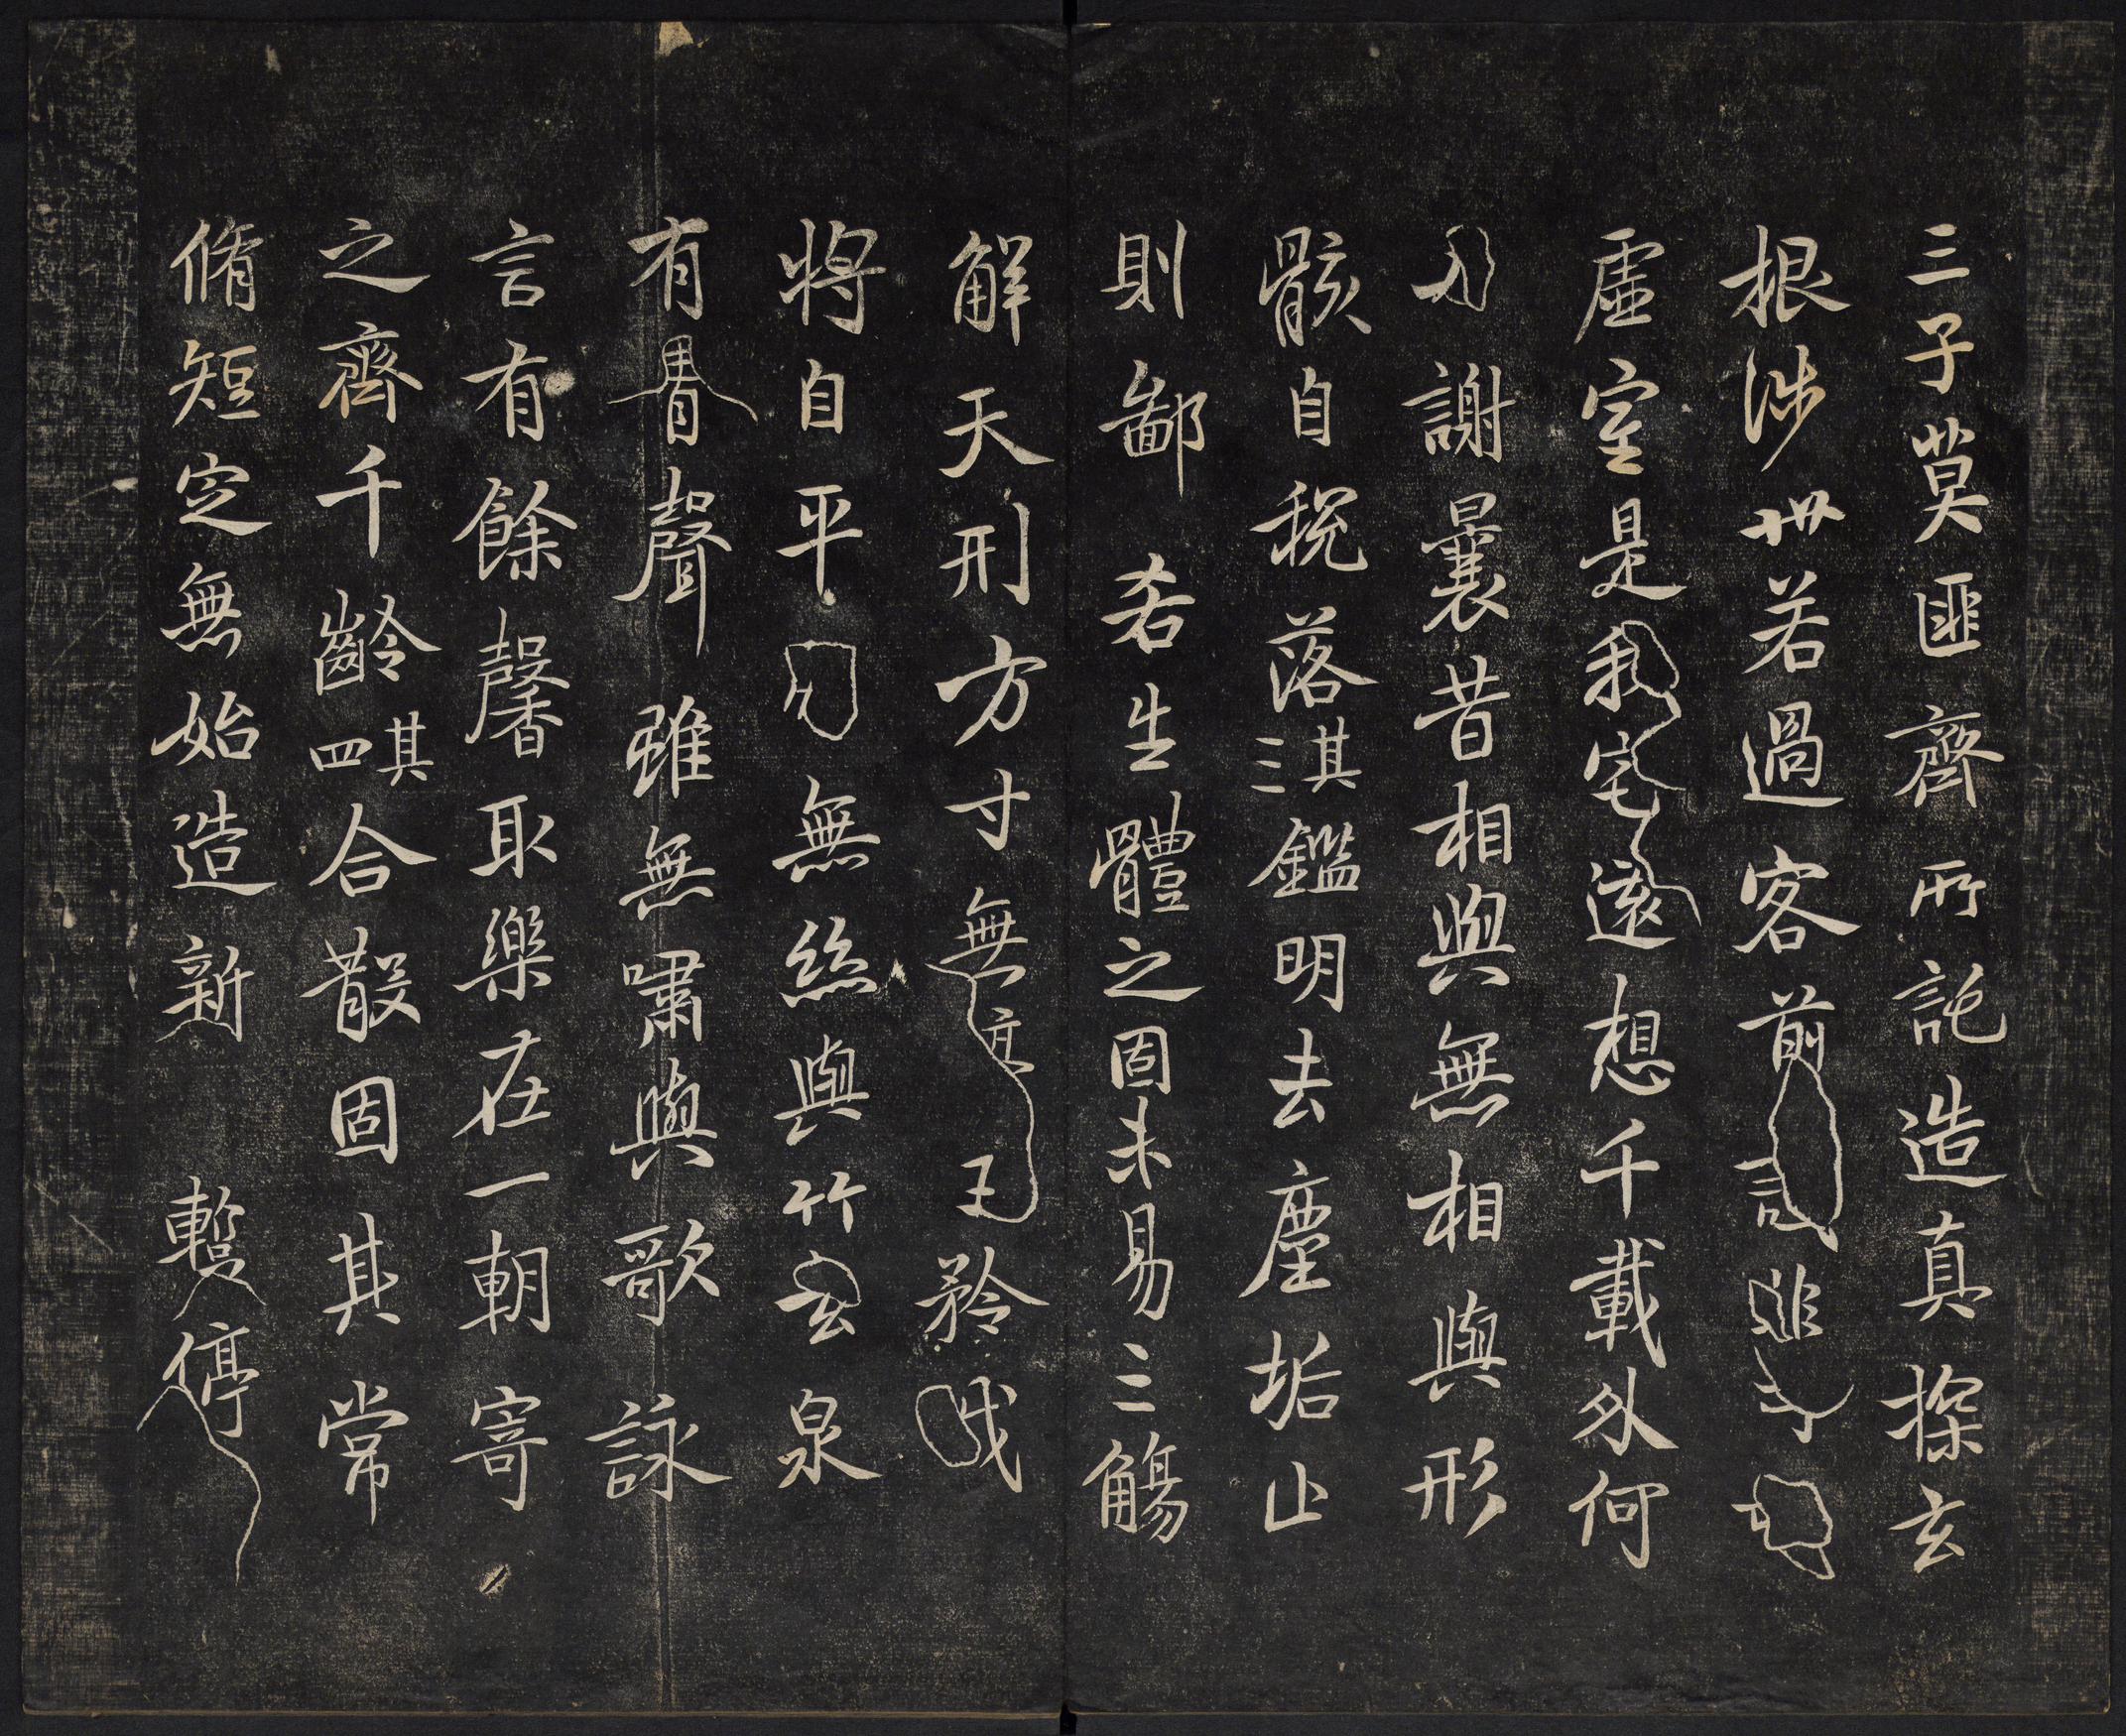 三子莫匪齊所託造真探玄
根涉世若過客前
虛室是我宅遠想千載外何
謝曩昔相與無相與形
骸自稅落其三鑑明去塵垢止
則鄙吝生體之固未易三觴
解天刑方寸無王矜
將自平無絲與竹玄泉
有聲雖無嘯與歌詠
言有餘馨取樂在一朝寄
之齊千齡其四合散固其常
脩短定無始造新暫停